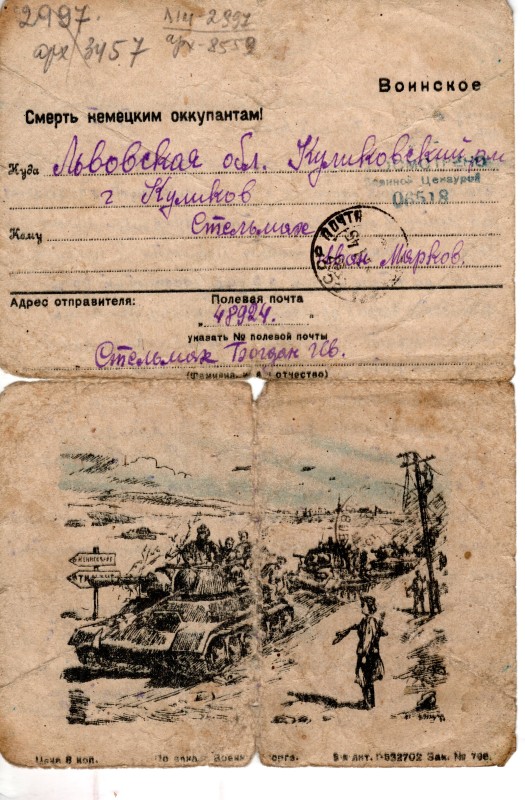 2997.
арх 3457
арх-8559
Воинское
Смерть немецким оккупантам!
Куда Львовская обл. Куликовский
г Куликов
Военной Цензурой
06518
Кому Стельмах
Иван Марков.
СССР ПОЧТА
Адрес отправителя: Полевая почта
48924.
указать № полевой почты
Стельмах Богдан Ив.
(фамилия, и., отчество)
Цена 8 коп. Зак. № 796.